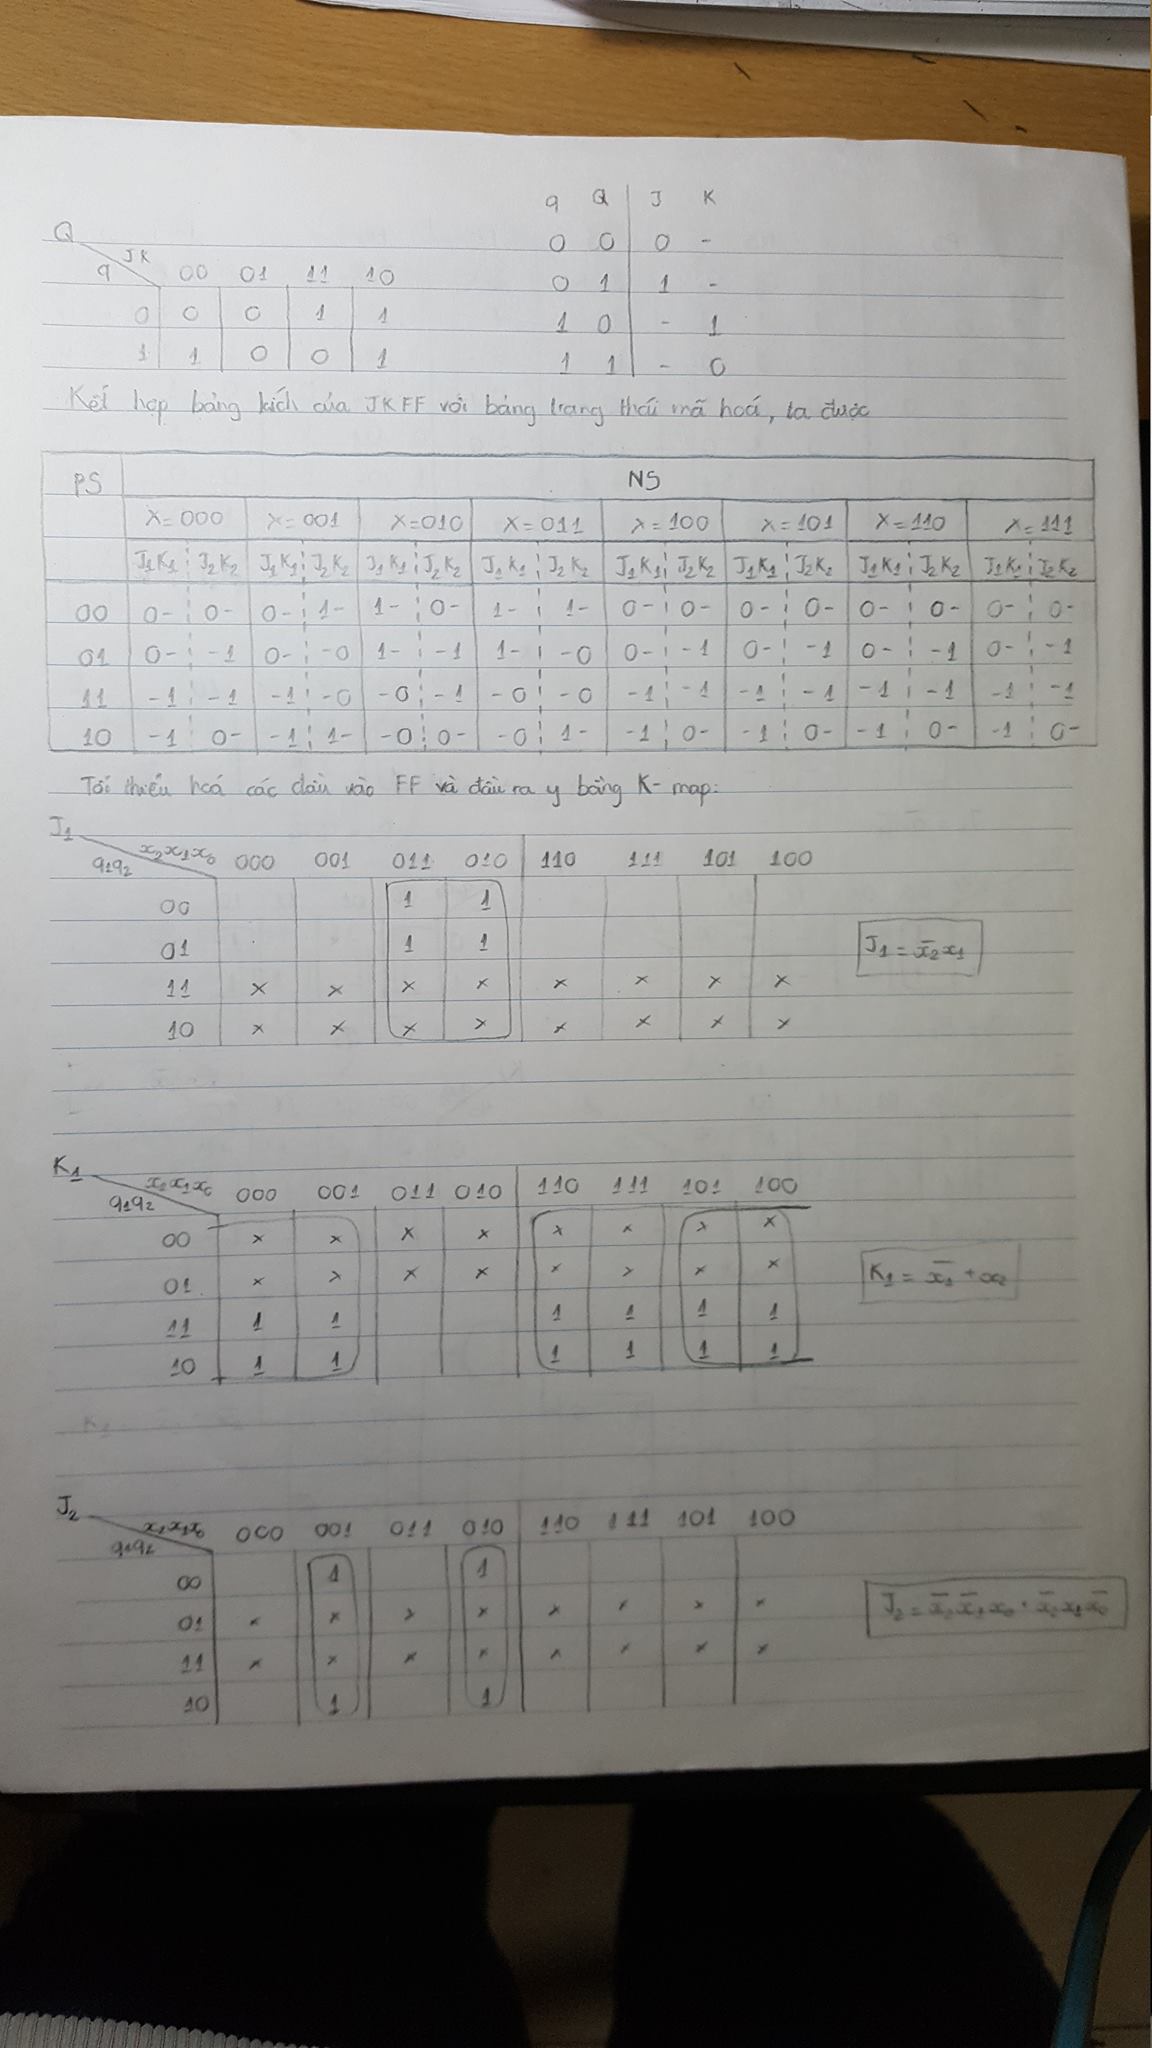 q Q J K
0 0 0 -
0 1 1 -
1 0 - 1
1 1 - 0
Q
q JK 00 01 11 10
0 0 0 1 1
1 1 0 0 1
Kết hợp bảng kích của JKFF với bảng trạng thái mã hoá, ta được
PS NS
X=000 X=001 X=010 X=011 X=100 X=101 X=110 X=111
J₁K₁ J₂K₂ J₁K₁ J₂K₂ J₁K₁ J₂K₂ J₁K₁ J₂K₂ J₁K₁ J₂K₂ J₁K₁ J₂K₂ J₁K₁ J₂K₂ J₁K₁ J₂K₂
00 0- 0- 0- 1- 1- 0- 1- 1- 0- 0- 0- 0- 0- 0- 0- 0-
01 0- -1 0- -0 1- -1 1- -0 0- -1 0- -1 0- -1 0- -1
11 -1 -1 -1 -0 -0 -1 -0 -0 -1 -1 -1 -1 -1 -1 -1 -1
10 -1 0- -1 1- -0 0- -0 1- -1 0- -1 0- -1 0- -1 0-
Tối thiểu hoá các đầu vào FF và đầu ra y bằng K-map:
J₁
q₁q₂ x₂x₁x₀ 000 001 011 010 110 111 101 100
00 1 1
01 1 1
11 x x x x x x x x
10 x x x x x x x x
J₁ = x̄₂x₁
K₁
q₁q₂ x₂x₁x₀ 000 001 011 010 110 111 101 100
00 x x x x x x x x
01 x x x x x x x x
11 1 1 1 1 1 1
10 1 1 1 1 1 1
K₁ = x̄₁ + x₂
J₂
q₁q₂ x₂x₁x₀ 000 001 011 010 110 111 101 100
00 1 1
01 x x x x x x x x
11 x x x x x x x x
10 1 1
J₂ = x̄₂x̄₁x₀ + x̄₂x₁x̄₀